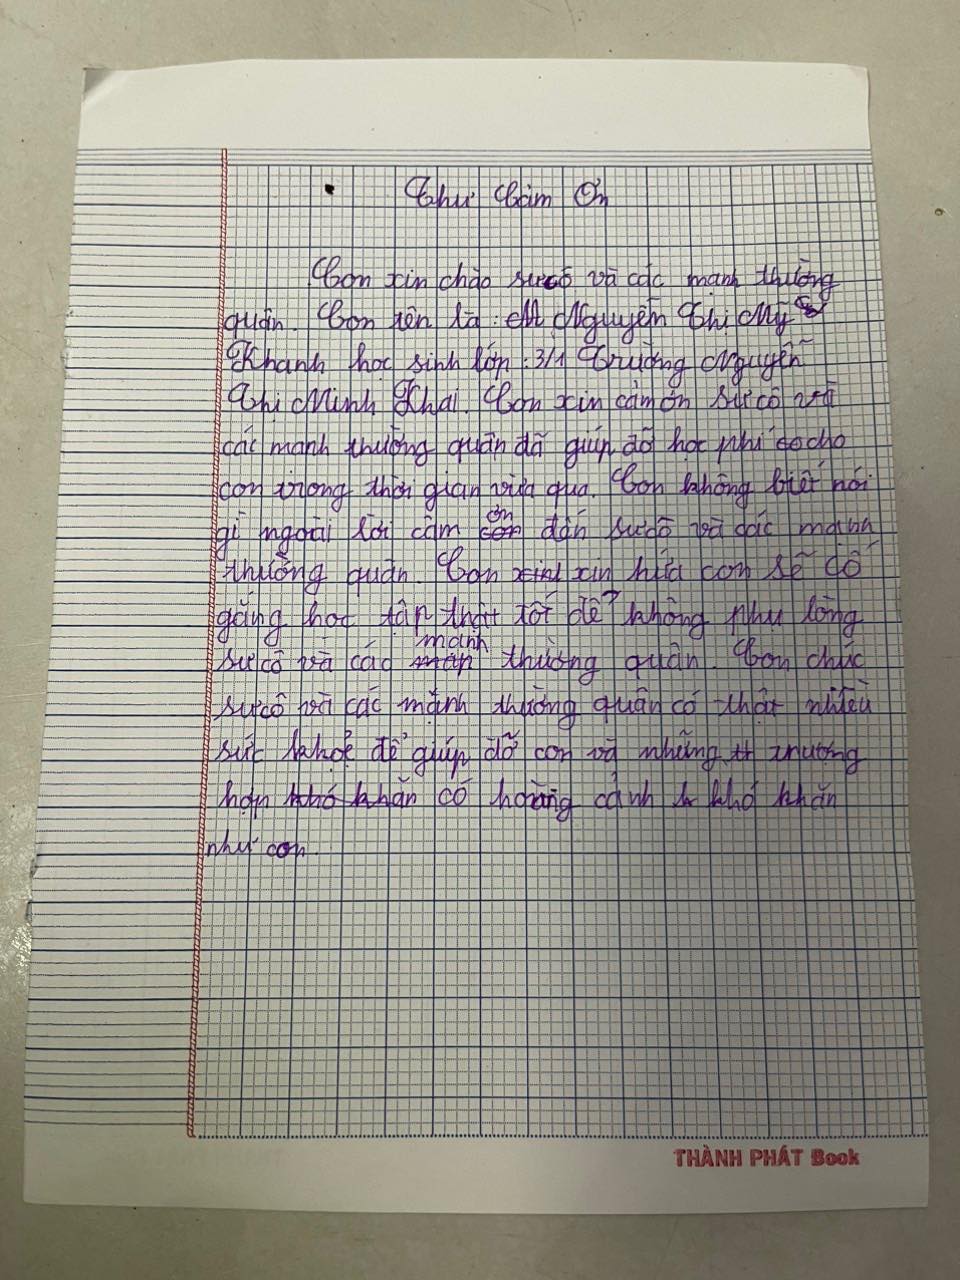 Thư Cảm Ơn
Con xin chào sư cô và các mạnh thường
quân. Con tên là: Nguyễn Thị Mỹ
Khanh học sinh lớp: 3/1 Trường Nguyễn
Thị Minh Khai. Con xin cảm ơn sư cô và
các mạnh thường quân đã giúp đỡ học phí cho
con trong thời gian vừa qua. Con không biết nói
gì ngoài lời cảm ơn đến sư cô và các mạnh
thường quân. Con xin hứa con sẽ cố
gắng học tập thật tốt để không phụ lòng
sư cô và các mạnh thường quân. Con chúc
sư cô và các mạnh thường quân có thật nhiều
sức khoẻ để giúp đỡ con và những trường
hợp có hoàng cảnh khó khăn
như con.
THÀNH PHÁT Book